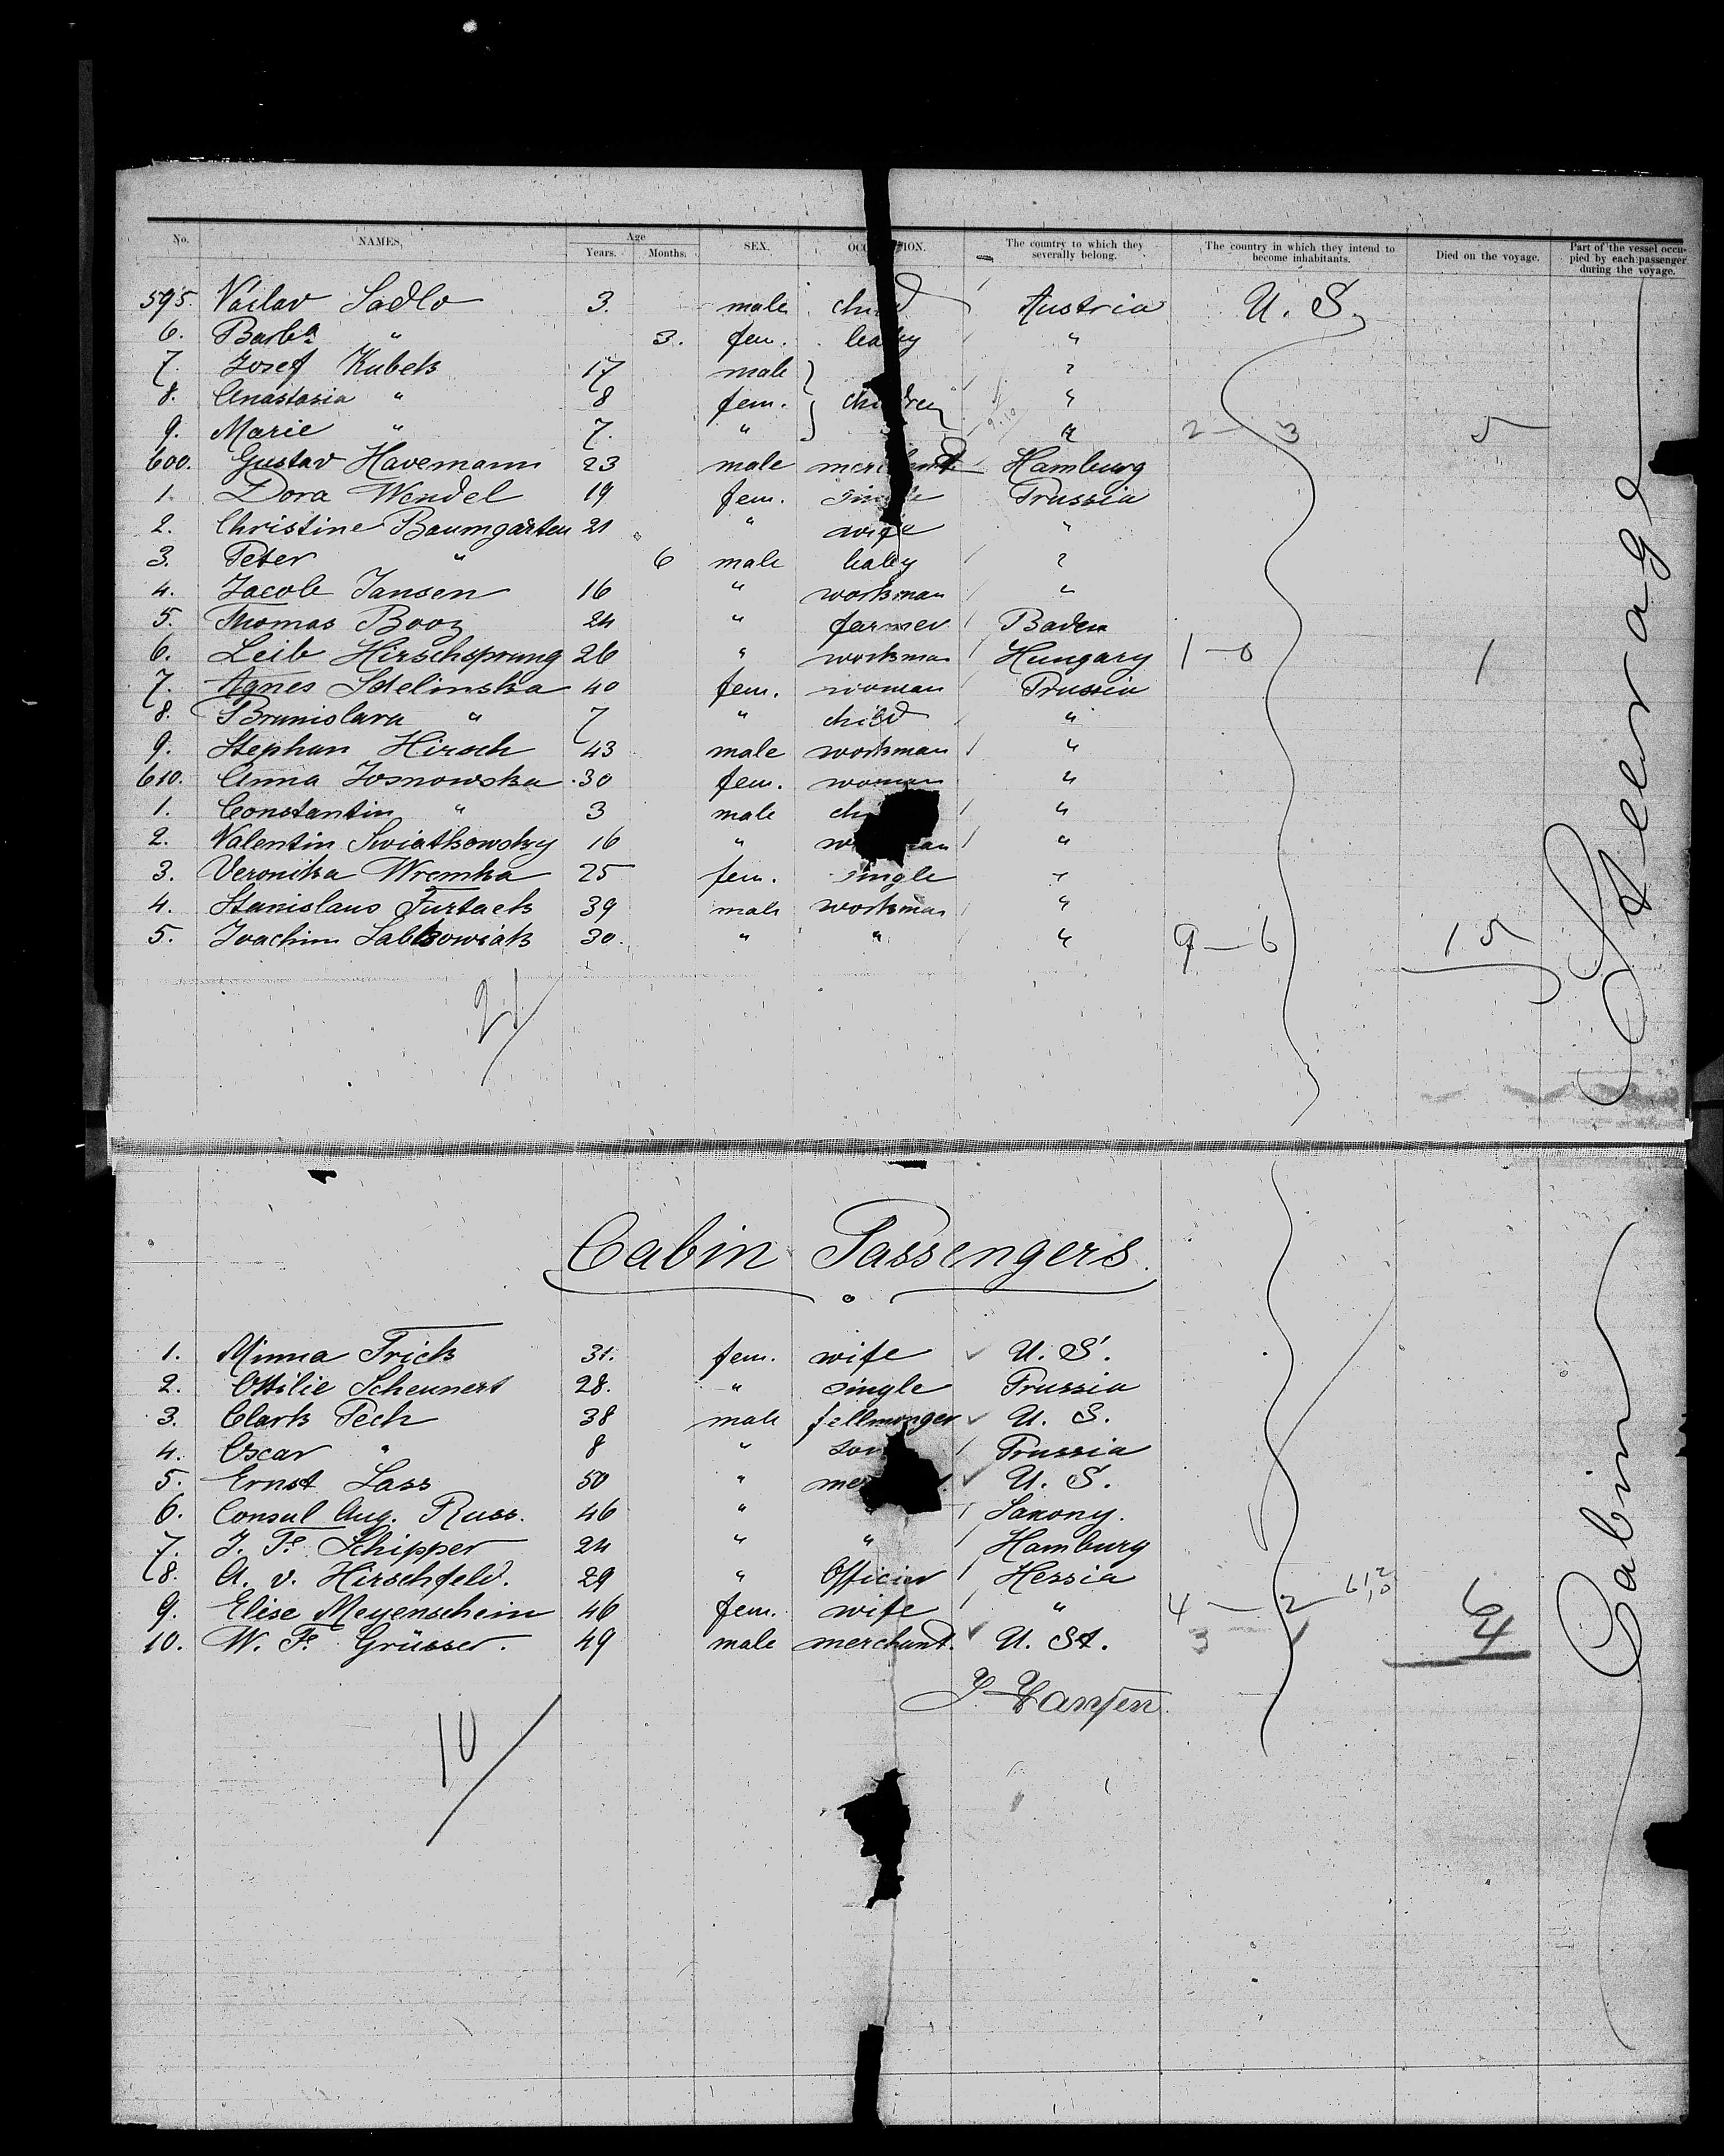 No. NAMES, Age Years. Months. SEX. OCC ION. The country to which they severally belong. The country in which they intend to become inhabitants. Died on the voyage. Part of the vessel occupied by each passenger during the voyage.
595. Vaclav Sadlo 3. male child Austria U. S.
6. Barba " 3. fem. baby "
7. Josef Kubek 17 male "
8. Anastasia " 8 fem. children "
9. Marie " 7. " " 2 — 3 5
600. Gustav Havemann 23 male merchant Hamburg
1. Dora Wendel 19 fem. single Prussia
2. Christine Baumgarten 21 " wife "
3. Peter " 6 male baby "
4. Jacob Jansen 16 " workman "
5. Thomas Booz 24 " farmer Baden
6. Leib Hirschsprung 26 " workman Hungary 1 — 0 1
7. Agnes 40 fem. woman Prussia
8. Branislava " 7 " child "
9. Stephan Hirsch 43 male workman "
610. Anna Josnowska 30 fem. woman "
1. Constantin " 3 male ch "
2. Valentin Swiatkowsky 16 " w man "
3. Veronika Wremka 25 fem. single "
4. Stanislaus Furtack 39 male workman "
5. Joachim 30. " " " 9 — 6 15
21
Steerage
Cabin Passengers.
1. Minna Frick 31. fem. wife U. S.
2. Ottilie Scheunert 28. " single Prussia
3. Clark Pech 38 male fellmonger U. S.
4. Oscar " 8 " son Prussia
5. Ernst Lass 50 " mer U. S.
6. Consul Aug. Russ. 46 " Saxony.
7. J. Fr. Schipper 24 " " Hamburg
8. A. v. Hirschfeld. 29 " Officier Hessia
9. Elise Meyenschein 46 fem. wife " 4 — 2 6
10. W. Fr. Grüsser. 49 male merchant. U. St. 3 4
10
Cabin